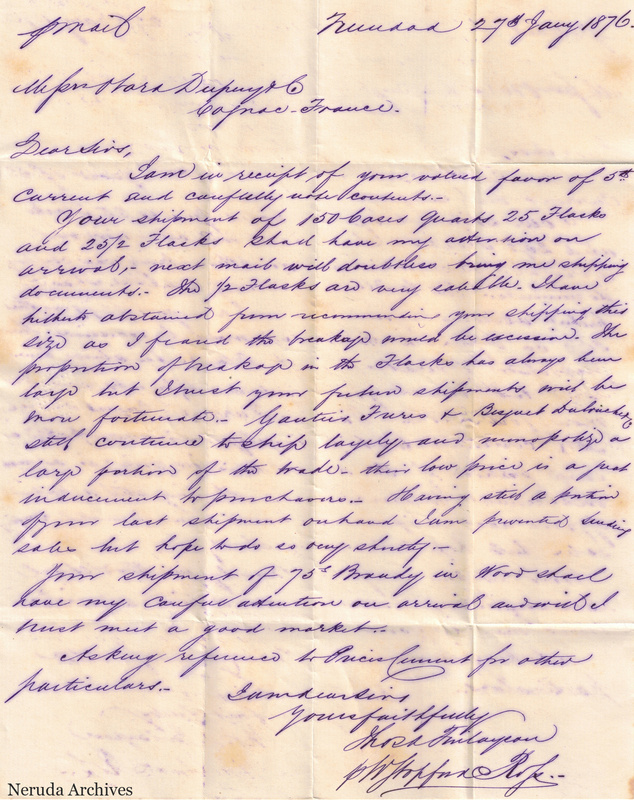 p mail Trinidad 27th Jany 1876.
Messrs Otard Dupuy & Co
Cognac - France.
Dear Sirs,
I am in receipt of your valued favor of 5th
current and carefully note contents.-
Your shipment of 150 Cases quarts 25 Flasks
and 25/2 Flasks shall have my attention on
arrival,- next mail will doubtless bring me shipping
documents.- The 1/2 Flasks are very saleable. I have
hitherto abstained from recommending your shipping this
size as I feared the breakage would be excessive. The
proportion of breakage in the Flasks has always been
large but I trust your future shipments will be
more fortunate.- Gautier Freres & Bisquit Dubouché & Co
still continue to ship largely and monopolize a
large portion of the trade - their low price is a great
inducement to purchasers.- Having still a portion
of your last shipment on hand I am prevented sending
sales but hope to do so very shortly.-
Your shipment of 75 Brandy in Wood shall
have my careful attention on arrival and will I
trust meet a good market.-
Asking reference to Prices Current for other
particulars.-
I am dear Sirs
Yours faithfully
Thos A Finlayson
p W Stopford Ross.-
Neruda Archives